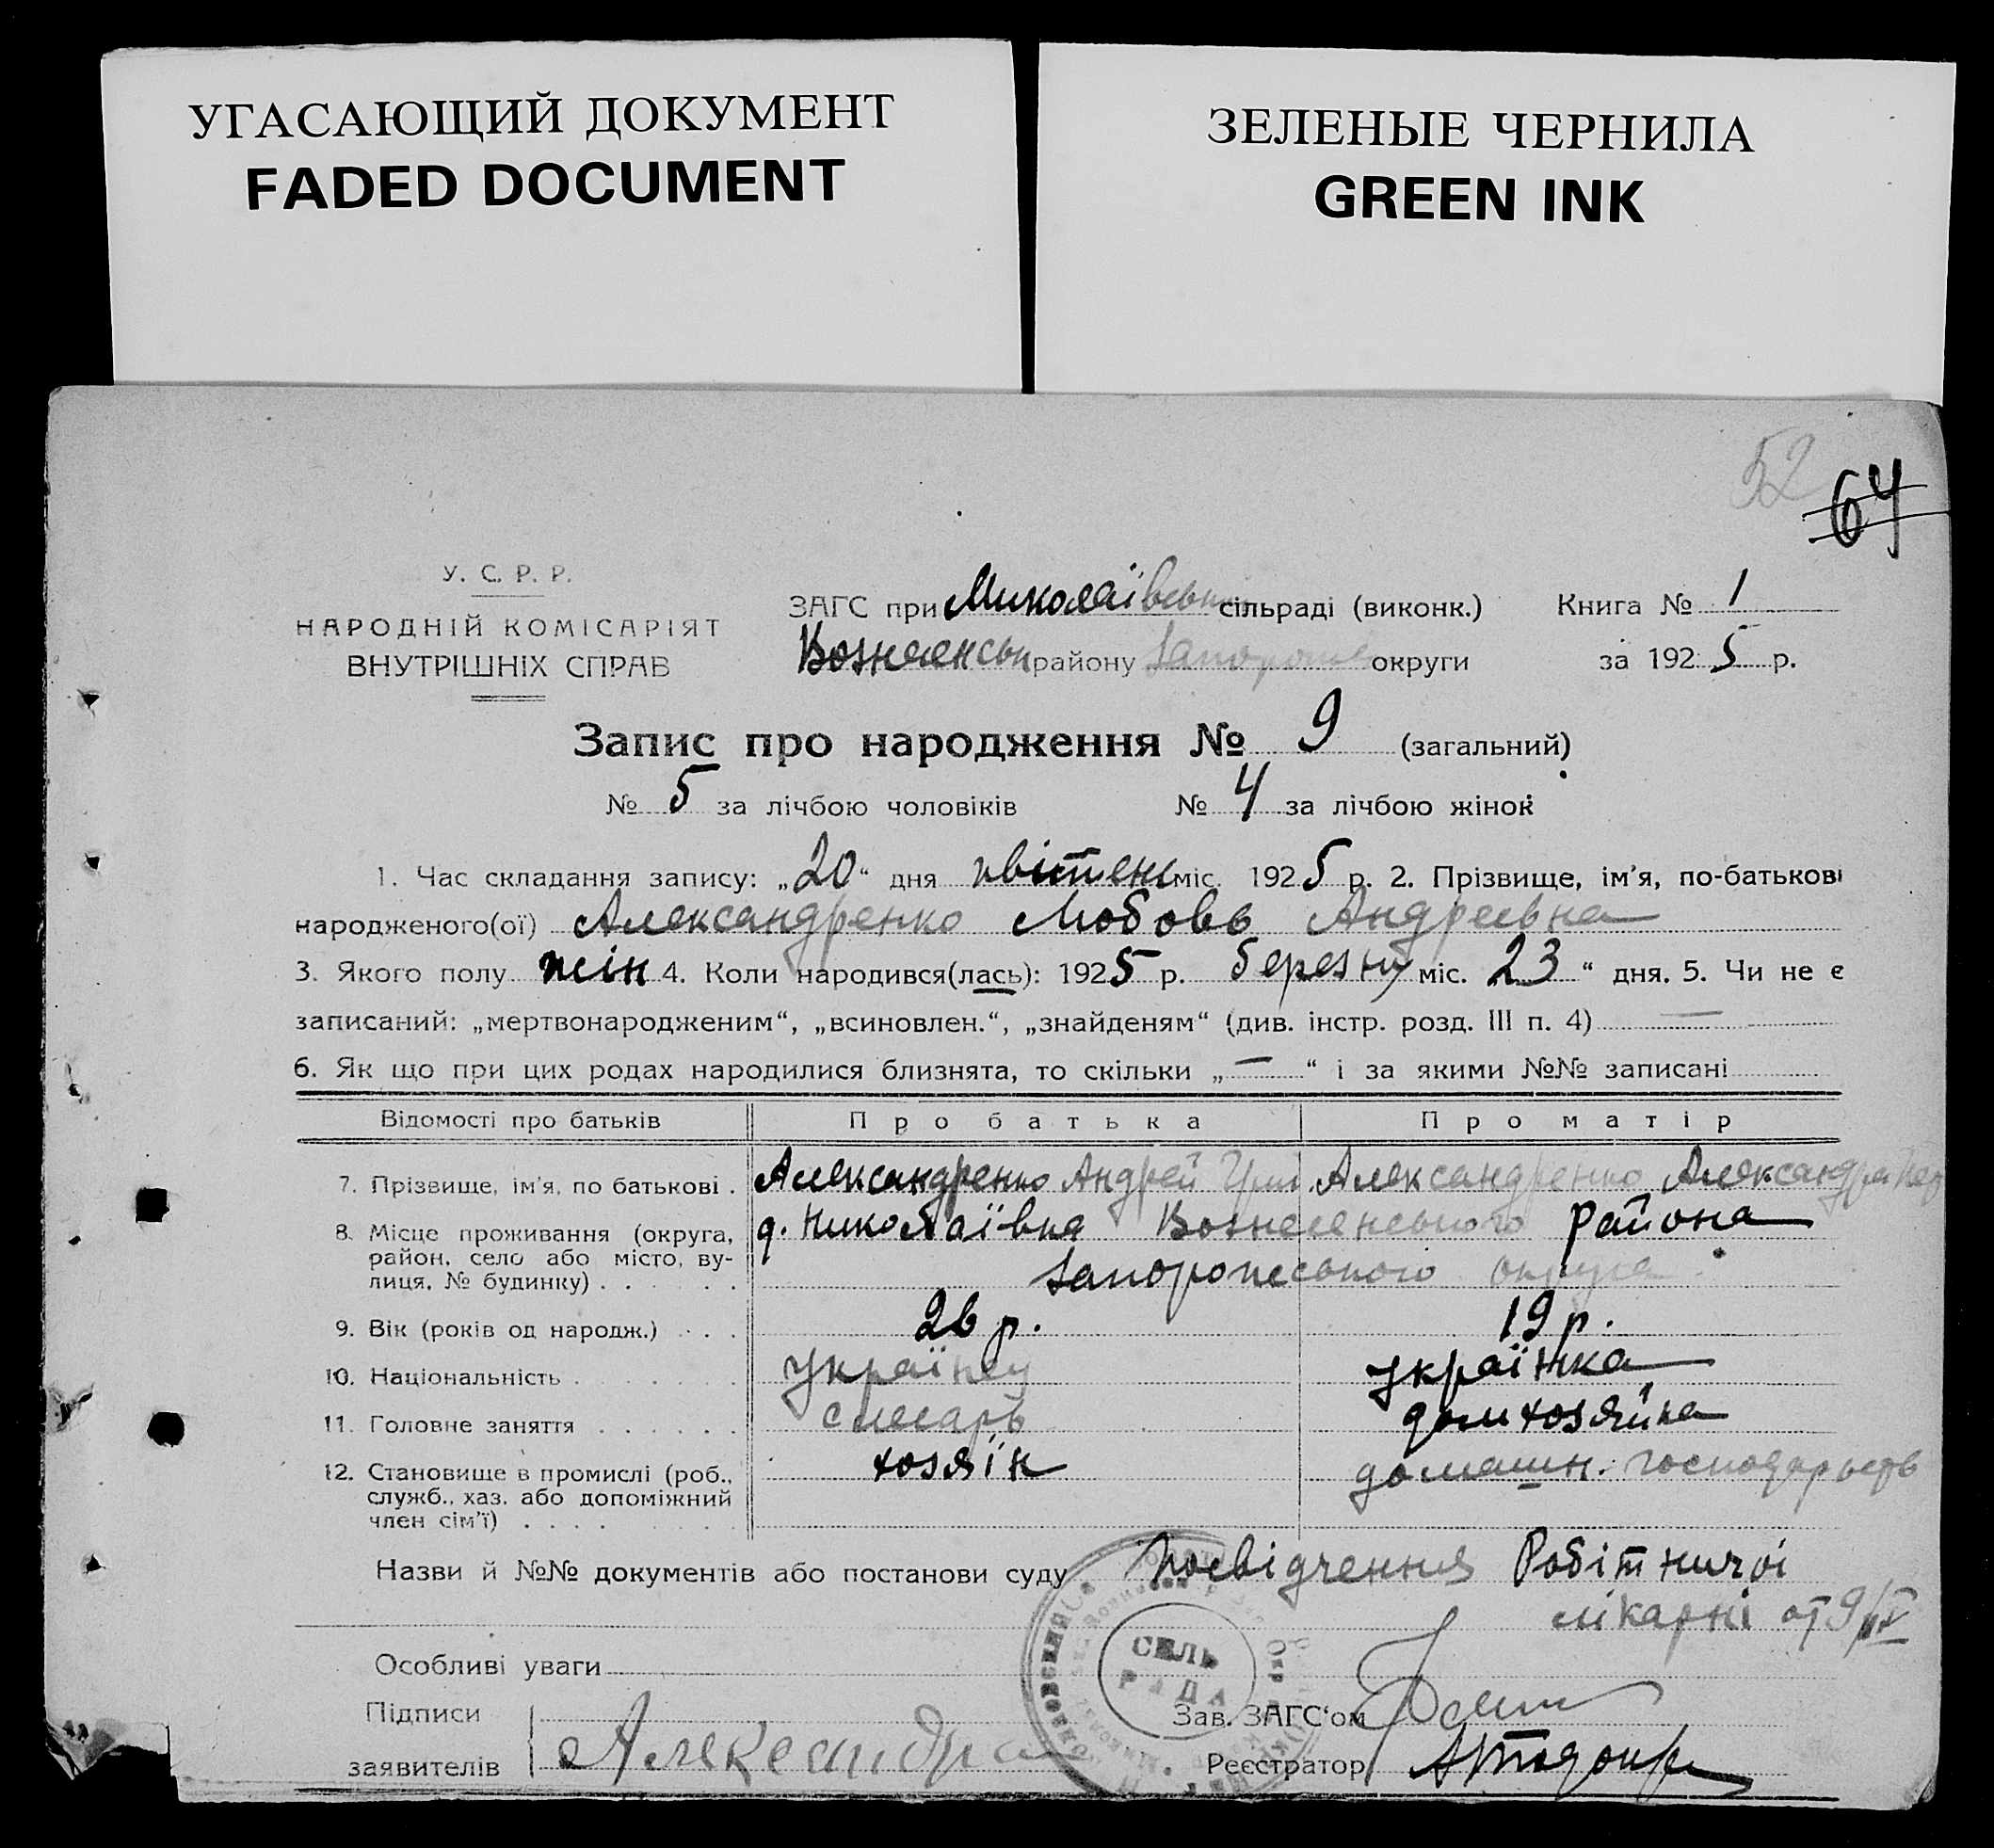 УГАСАЮЩИЙ ДОКУМЕНТ
FADED DOCUMENT
ЗЕЛЕНЫЕ ЧЕРНИЛА
GREEN INK
52
64
У. С. Р. Р.
НАРОДНІЙ КОМІСАРІЯТ
ВНУТРІШНІХ СПРАВ
ЗАГС при Миколаївськ сільраді (виконк.)
Вознесенськ району Запорожс округи
Книга № 1
за 1925 р.
Запис про народження № 9 (загальний)
№ 5 за лічбою чоловіків № 4 за лічбою жінок
1. Час складання запису: „20“ дня квітень міс. 1925 р. 2. Прізвище, ім'я, по-батькові
народженого(ої) Александренко Любовь Андреевна
3. Якого полу жін 4. Коли народився(лась): 1925 р. березню міс. 23 “ дня. 5. Чи не є
записаний: „мертвонародженим“, „всиновлен.“, „знайденям“ (див. інстр. розд. III п. 4) —
6. Як що при цих родах народилися близнята, то скільки „—“ і за якими №№ записані
Відомості про батьків Про батька Про матір
7. Прізвище, ім'я, по батькові . Александренко Андрей Григ. Александренко Александра
8. Місце проживання (округа, район, село або місто, вулиця, № будинку) . . . . . д. Николаївка Вознесенського района
Запорожського округа
9. Вік (років од народж.) . . . 26 р. 19 р.
10. Національність . . . . . . . українец українка
11. Головне заняття . . . . . . слесарь домхозяйка
12. Становище в промислі (роб., служб., хаз. або допоміжний член сім'ї) . . . . хозяїн домашн. господарств
Назви й №№ документів або постанови суду Посвідчення Робітничої
лікарні от 9/IV
СЕЛЬ
РАДА
Особливі уваги
Підписи
заявителів Александре
Зав. ЗАГС'ом
Реєстратор